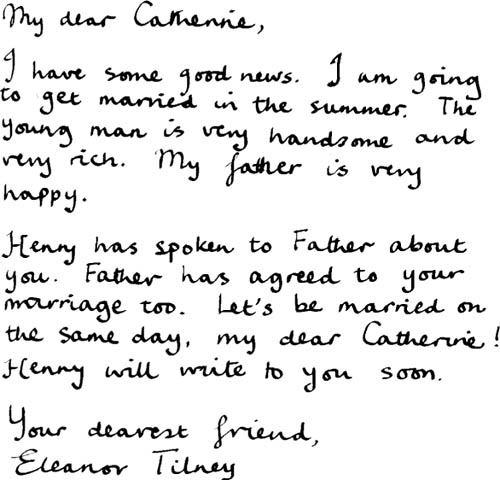 My dear Catherine,
I have some good news. I am going
to get married in the summer. The
young man is very handsome and
very rich. My father is very
happy.
Henry has spoken to Father about
you. Father has agreed to your
marriage too. Let's be married on
the same day, my dear Catherine!
Henry will write to you soon.
Your dearest friend,
Eleanor Tilney